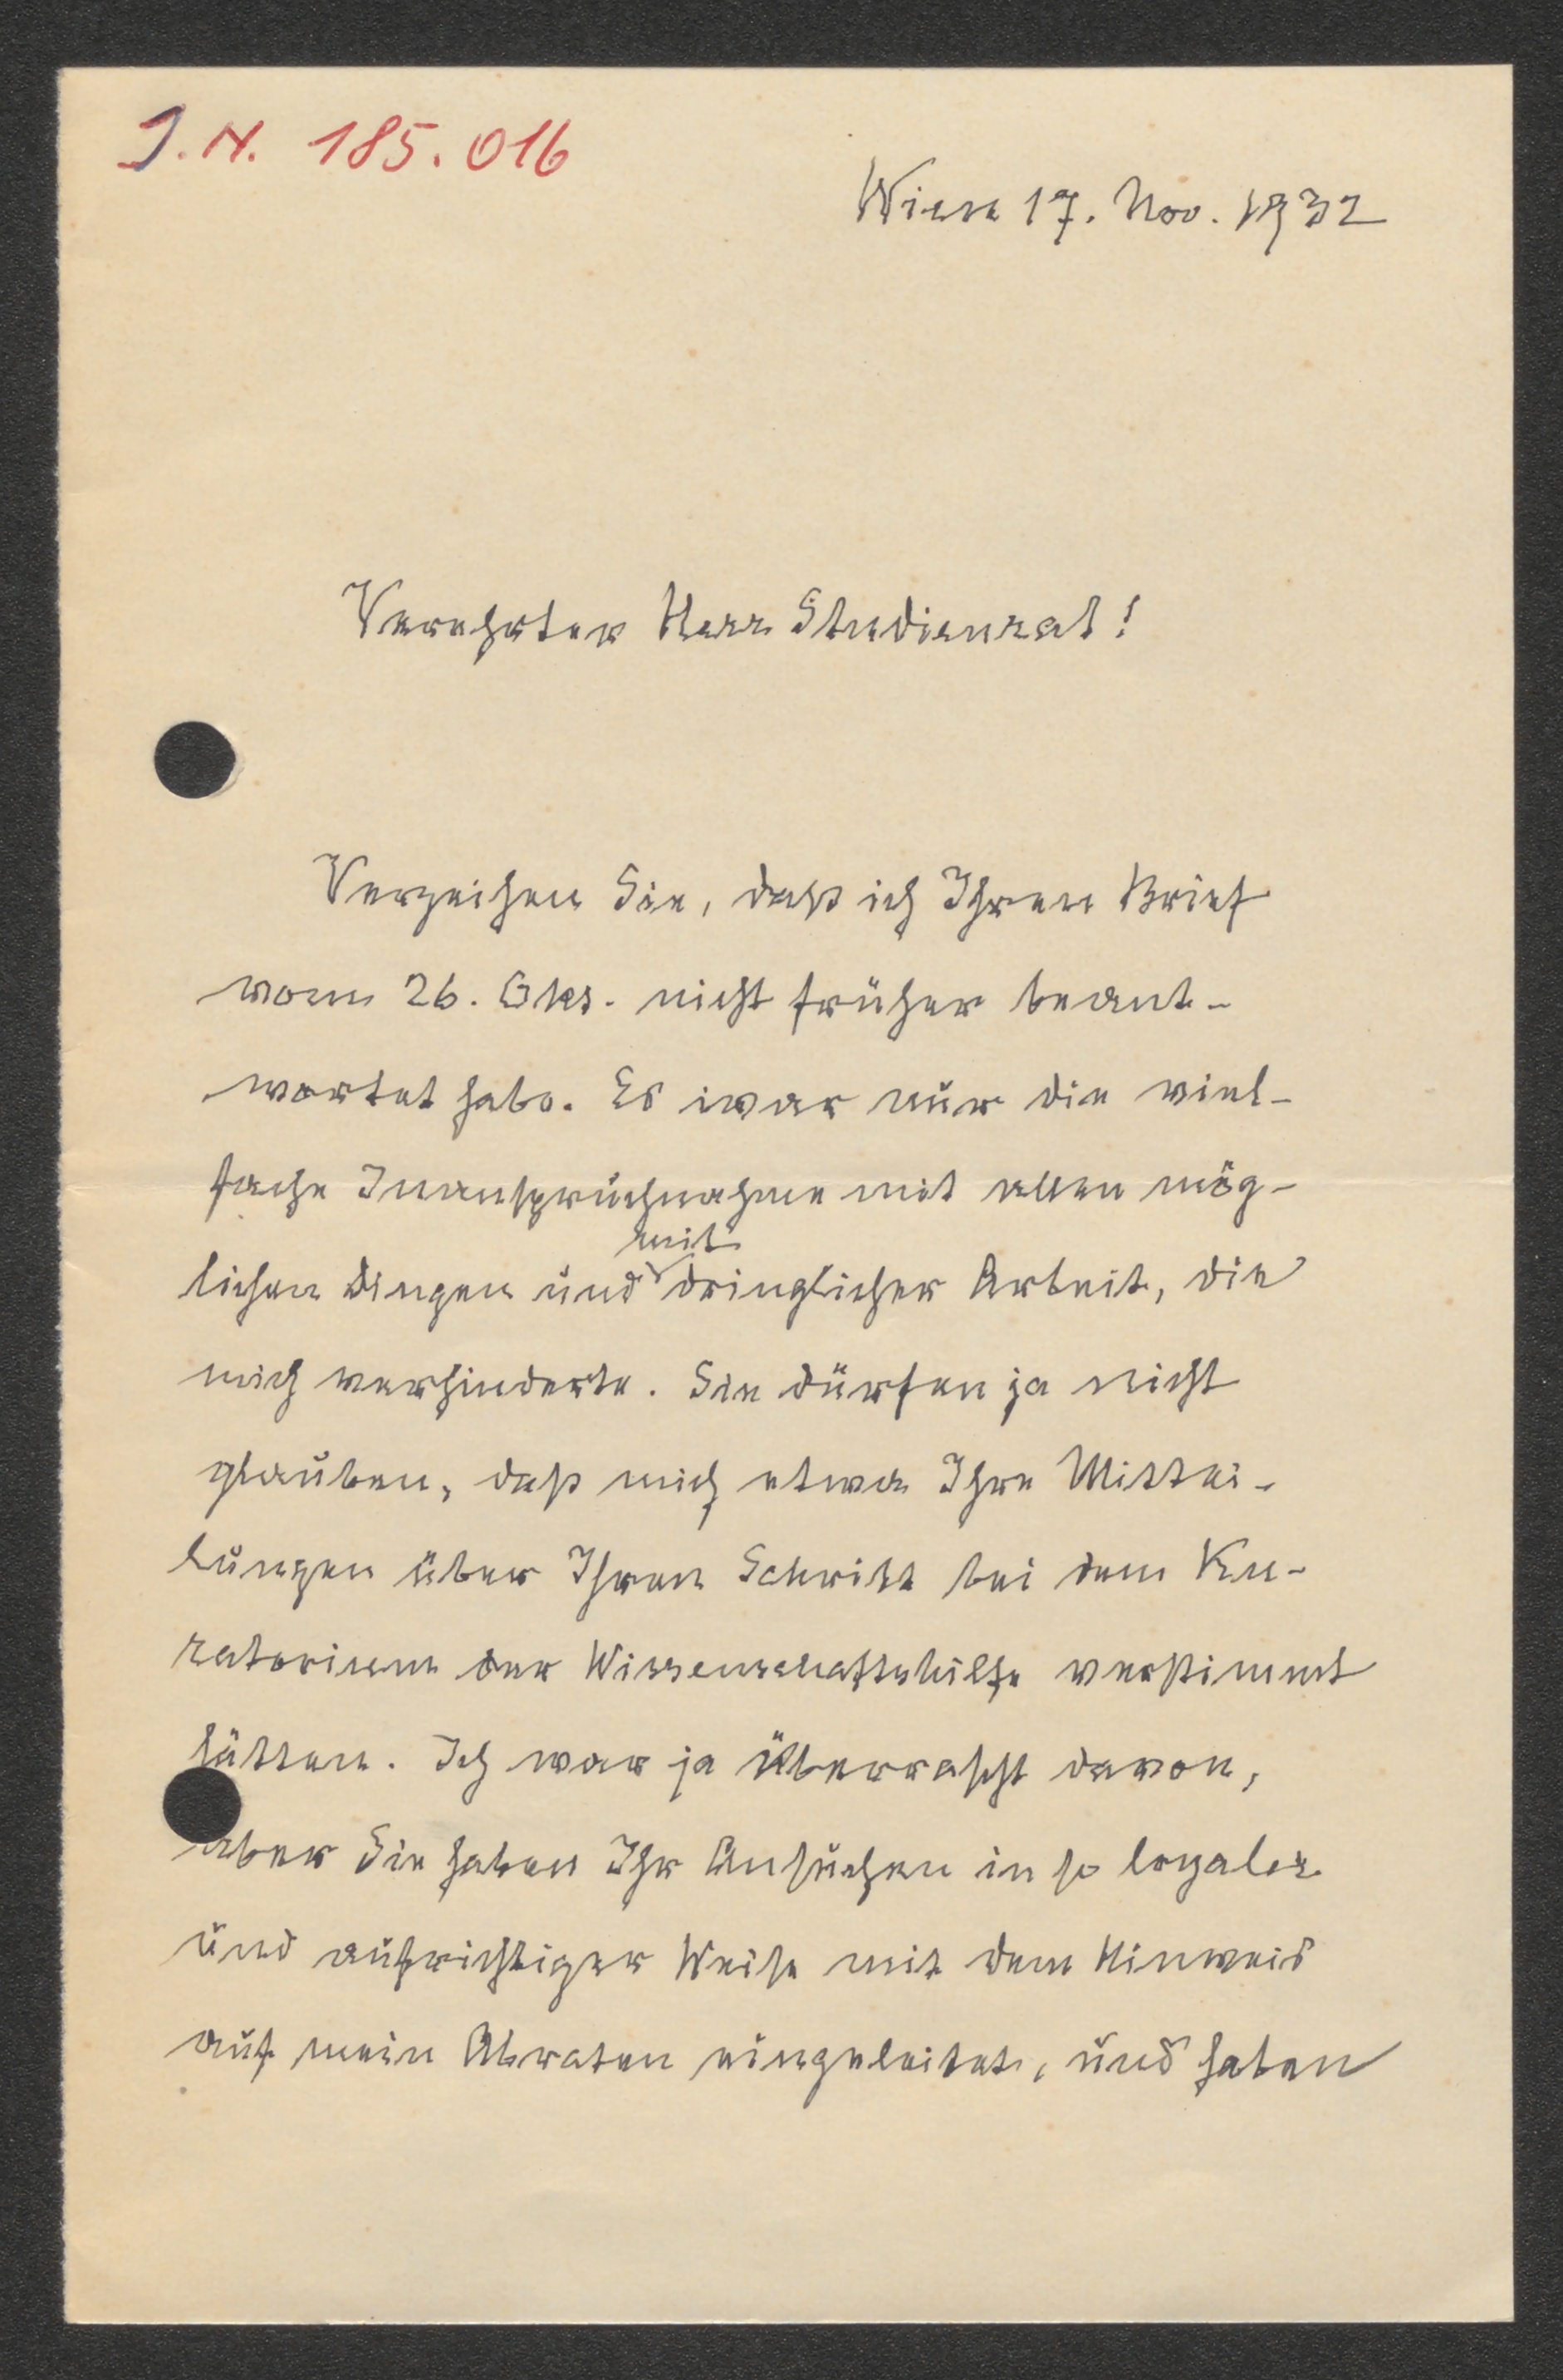 I.N. 185.016
Wien 17. Nov. 1932
Verehrter Herr Studienrat!
Verzeihen Sie, daß ich Ihren Brief
vom 26. Okt. nicht früher beant-
wortet habe. Es war nur die viel-
fache Inanspruchnahme mit allen mög-
mit
lichen Dingen und dringlicher Arbeit, die
mich verhinderte. Sie dürfen ja nicht
glauben, daß mich etwa Ihre Mittei-
lungen über Ihren Schritt bei dem Ku-
ratorium der Wissenschaftshilfe verstimmt
hätten. Ich war ja überrascht davon,
aber Sie haben Ihr Ansuchen in so loyaler
und aufrichtiger Weise mit dem Hinweis
auf mein Abraten eingeleitet, und haben